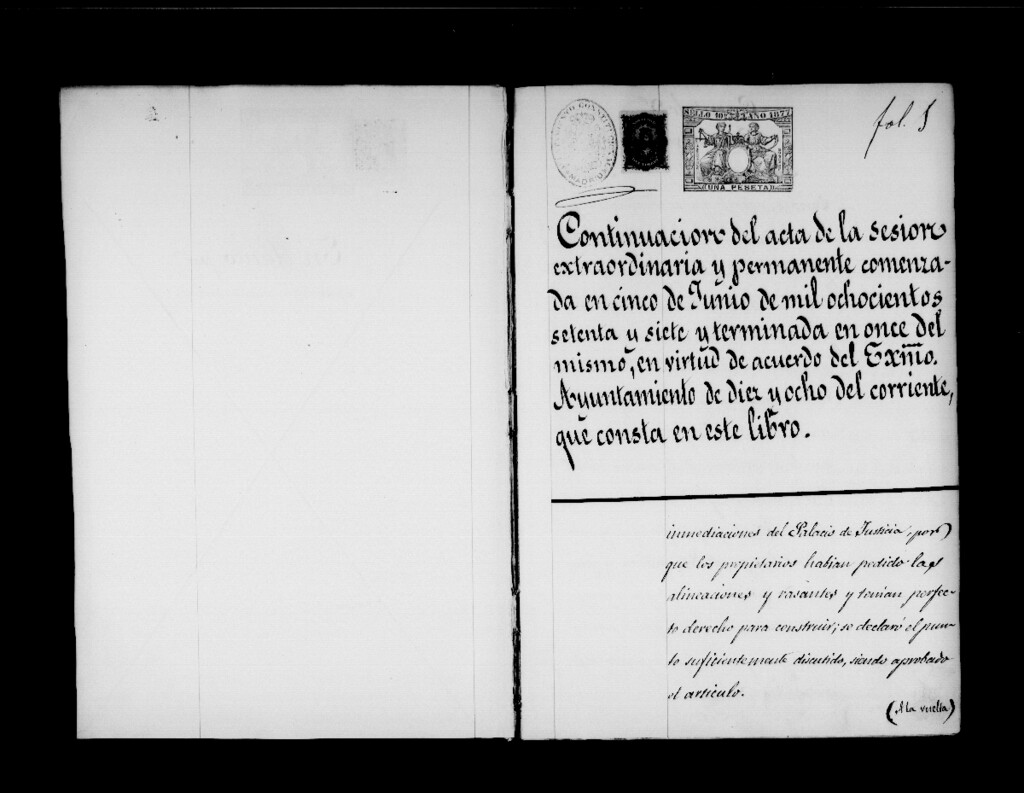 SELLO 10º AÑO 1877
UNA PESETA
fol. 1
Continuacion del acta de la sesion
extraordinaria y permanente comenza-
da en cinco de Junio de mil ochocientos
setenta y siete y terminada en once del
mismo, en virtud de acuerdo del Exmo.
Ayuntamiento de diez y ocho del corriente,
que consta en este libro.
inmediaciones del Palacio de Justicia, por
que los propietarios habian pedido las
alineaciones y rasantes y tenian perfec-
to derecho para construir; se declaró el pun-
to suficientemente discutido, siendo aprobado
el articulo.
(A la vuelta)